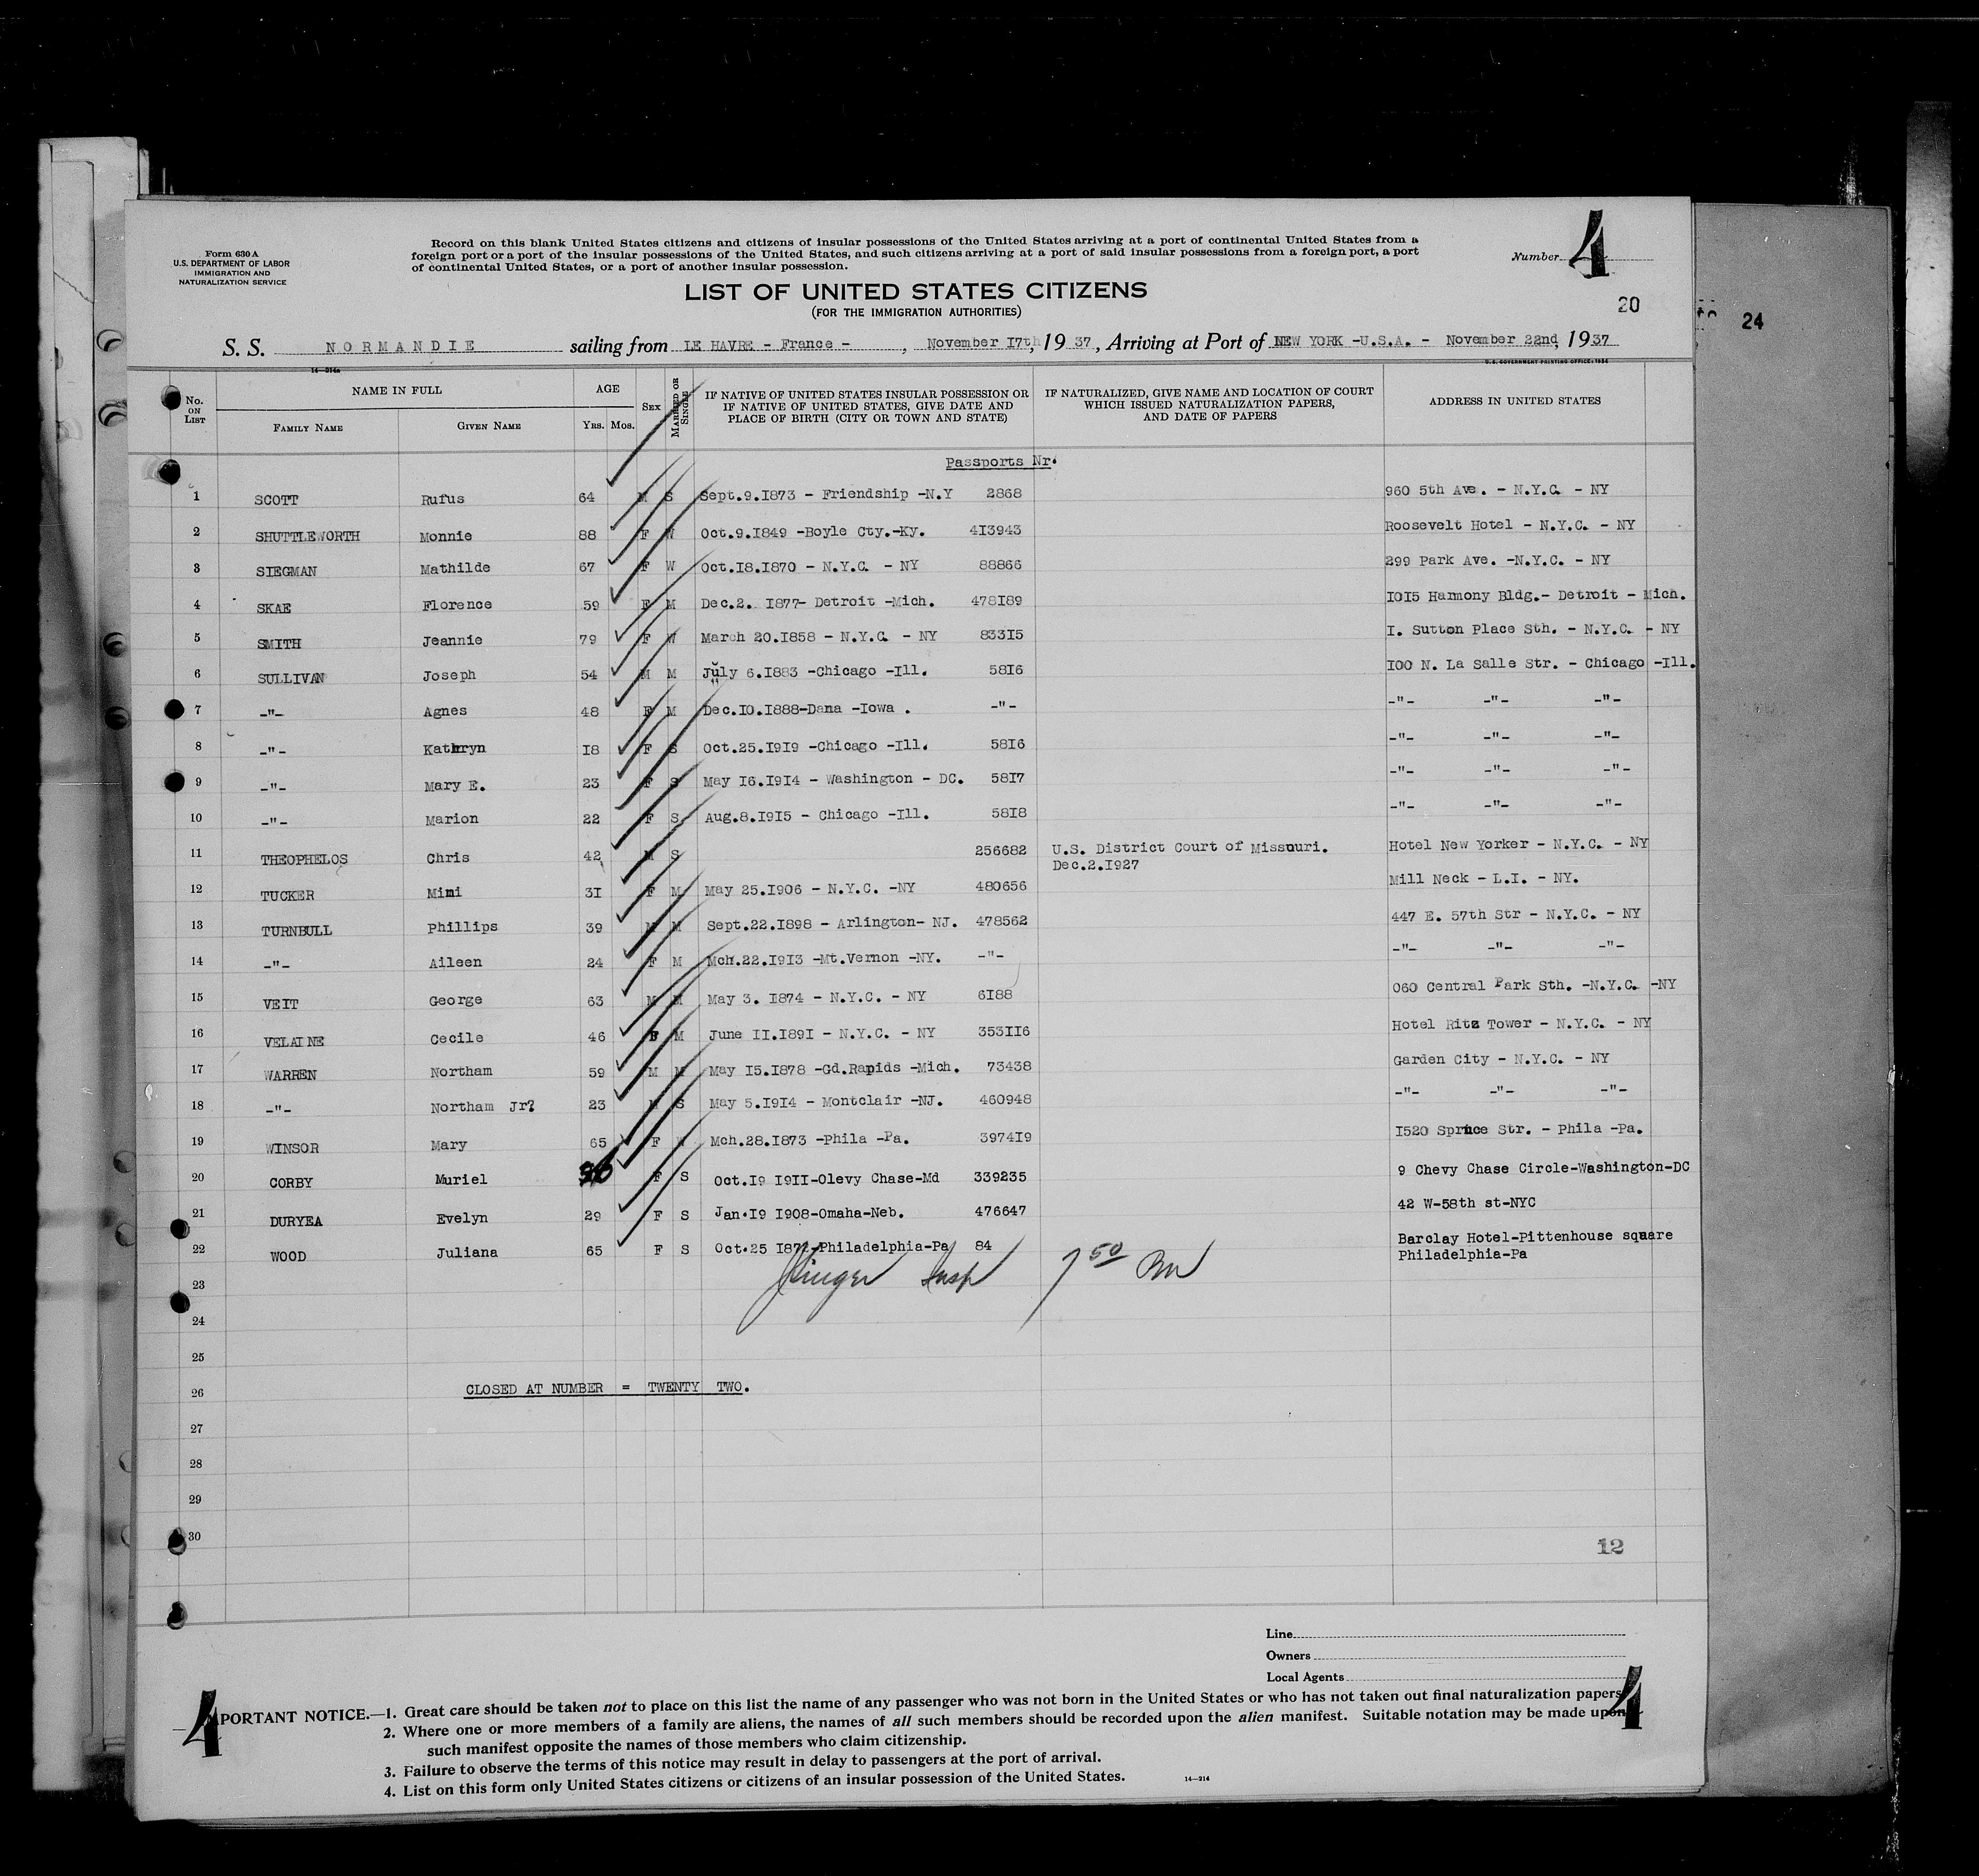 Form 630 A
U.S. DEPARTMENT OF LABOR
IMMIGRATION AND
NATURALIZATION SERVICE
Record on this blank United States citizens and citizens of insular possessions of the United States arriving at a port of continental United States from a
foreign port or a port of the insular possessions of the United States, and such citizens arriving at a port of said insular possessions from a foreign port, a port
of continental United States, or a port of another insular possession.
Number 4
LIST OF UNITED STATES CITIZENS
(FOR THE IMMIGRATION AUTHORITIES)
20
24
S. S. NORMANDIE sailing from LE HAVRE - France - , November I7th, 1937, Arriving at Port of NEW YORK -U.S.A. - November 22nd, 1937
14—214a
U.S. GOVERNMENT PRINTING OFFICE: 1934
No. ON LIST NAME IN FULL FAMILY NAME GIVEN NAME AGE YRS. MOS. SEX MARRIED OR SINGLE IF NATIVE OF UNITED STATES INSULAR POSSESSION OR IF NATIVE OF UNITED STATES, GIVE DATE AND PLACE OF BIRTH (CITY OR TOWN AND STATE) IF NATURALIZED, GIVE NAME AND LOCATION OF COURT WHICH ISSUED NATURALIZATION PAPERS, AND DATE OF PAPERS ADDRESS IN UNITED STATES
Passports Nr.
1 SCOTT Rufus 64 M S Sept.9.I873 - Friendship -N.Y 2868 960 5th Ave. - N.Y.C. - NY
2 SHUTTLEWORTH Monnie 88 F W Oct.9.I849 -Boyle Cty.-Ky. 4I3943 Roosevelt Hotel - N.Y.C. - NY
3 SIEGMAN Mathilde 67 F W Oct.I8.I870 - N.Y.C. - NY 88866 299 Park Ave. -N.Y.C. - NY
4 SKAE Florence 59 F M Dec.2. I877- Detroit -Mich. 478I89 I0I5 Harmony Bldg.- Detroit - Mich.
5 SMITH Jeannie 79 F W March 20.I858 - N.Y.C. - NY 833I5 I. Sutton Place Sth. - N.Y.C. - NY
6 SULLIVAN Joseph 54 M M July 6.I883 -Chicago -Ill. 58I6 I00 N. La Salle Str. - Chicago -Ill.
7 -"- Agnes 48 F M Dec.I0.I888-Dana -Iowa . -"- -"- -"- -"-
8 -"- Kathryn I8 F S Oct.25.I9I9 -Chicago -Ill. 58I6 -"- -"- -"-
9 -"- Mary E. 23 F S May I6.I9I4 - Washington - DC. 58I7 -"- -"- -"-
10 -"- Marion 22 F S Aug.8.I9I5 - Chicago -Ill. 58I8 -"- -"- -"-
11 THEOPHELOS Chris 42 M S 256682 U.S. District Court of Missouri. Hotel New Yorker - N.Y.C. - NY
Dec.2.I927
12 TUCKER Mimi 3I F M May 25.I906 - N.Y.C. -NY 480656 Mill Neck - L.I. - NY.
13 TURNBULL Phillips 39 M M Sept.22.I898 - Arlington- NJ. 478562 447 E. 57th Str - N.Y.C. - NY
14 -"- Aileen 24 F M Mch.22.I9I3 -Mt.Vernon -NY. -"- -"- -"- -"-
15 VEIT George 63 M M May 3. I874 - N.Y.C. - NY 6I88 060 Central Park Sth. -N.Y.C. -NY
16 VELAINE Cecile 46 F M June II.I89I - N.Y.C. - NY 353II6 Hotel Ritz Tower - N.Y.C. - NY
17 WARREN Northam 59 M M May I5.I878 -Gd.Rapids -Mich. 73438 Garden City - N.Y.C. - NY
18 -"- Northam Jr? 23 M S May 5.I9I4 - Montclair -NJ. 460948 -"- -"- -"-
19 WINSOR Mary 65 F W Mch.28.I873 -Phila -Pa. 3974I9 I520 Spruce Str. - Phila -Pa.
20 CORBY Muriel F S Oct.I9 I9II-Olevy Chase-Md 339235 9 Chevy Chase Circle-Washington-DC
21 DURYEA Evelyn 29 F S Jan.I9 I908-Omaha-Neb. 476647 42 W-58th st-NYC
22 WOOD Juliana 65 F S Oct.25 I872-Philadelphia-Pa 84 Barclay Hotel-Pittenhouse square
Philadelphia-Pa
Insp 7 50
23
24
25
26 CLOSED AT NUMBER = TWENTY TWO.
27
28
29
30
12
Line
Owners
Local Agents
4 PORTANT NOTICE.—1. Great care should be taken not to place on this list the name of any passenger who was not born in the United States or who has not taken out final naturalization papers 4
2. Where one or more members of a family are aliens, the names of all such members should be recorded upon the alien manifest. Suitable notation may be made upon
such manifest opposite the names of those members who claim citizenship.
3. Failure to observe the terms of this notice may result in delay to passengers at the port of arrival.
4. List on this form only United States citizens or citizens of an insular possession of the United States.
14—214